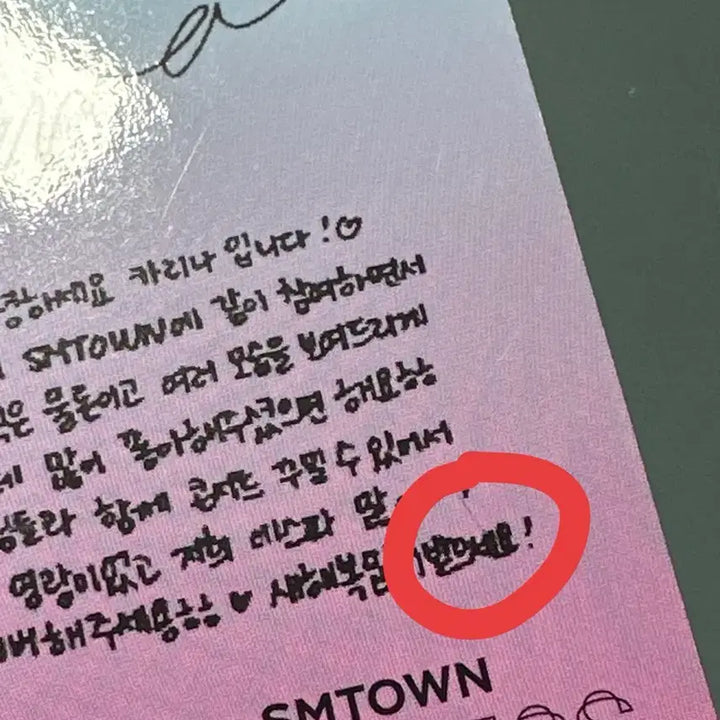 a
카리나 입니다!♡
SMTOWN에 같이 참여하면서
물론이고 여러 모습을 보여드리게
많이 좋아해주셨으면 해요ㅎㅎ
함께 콘서트 꾸밀 수 있어서
영광이었고 저희 에스파 많
해주세용ㅎㅎ ♥ 새해복 받으세요!
SMTOWN